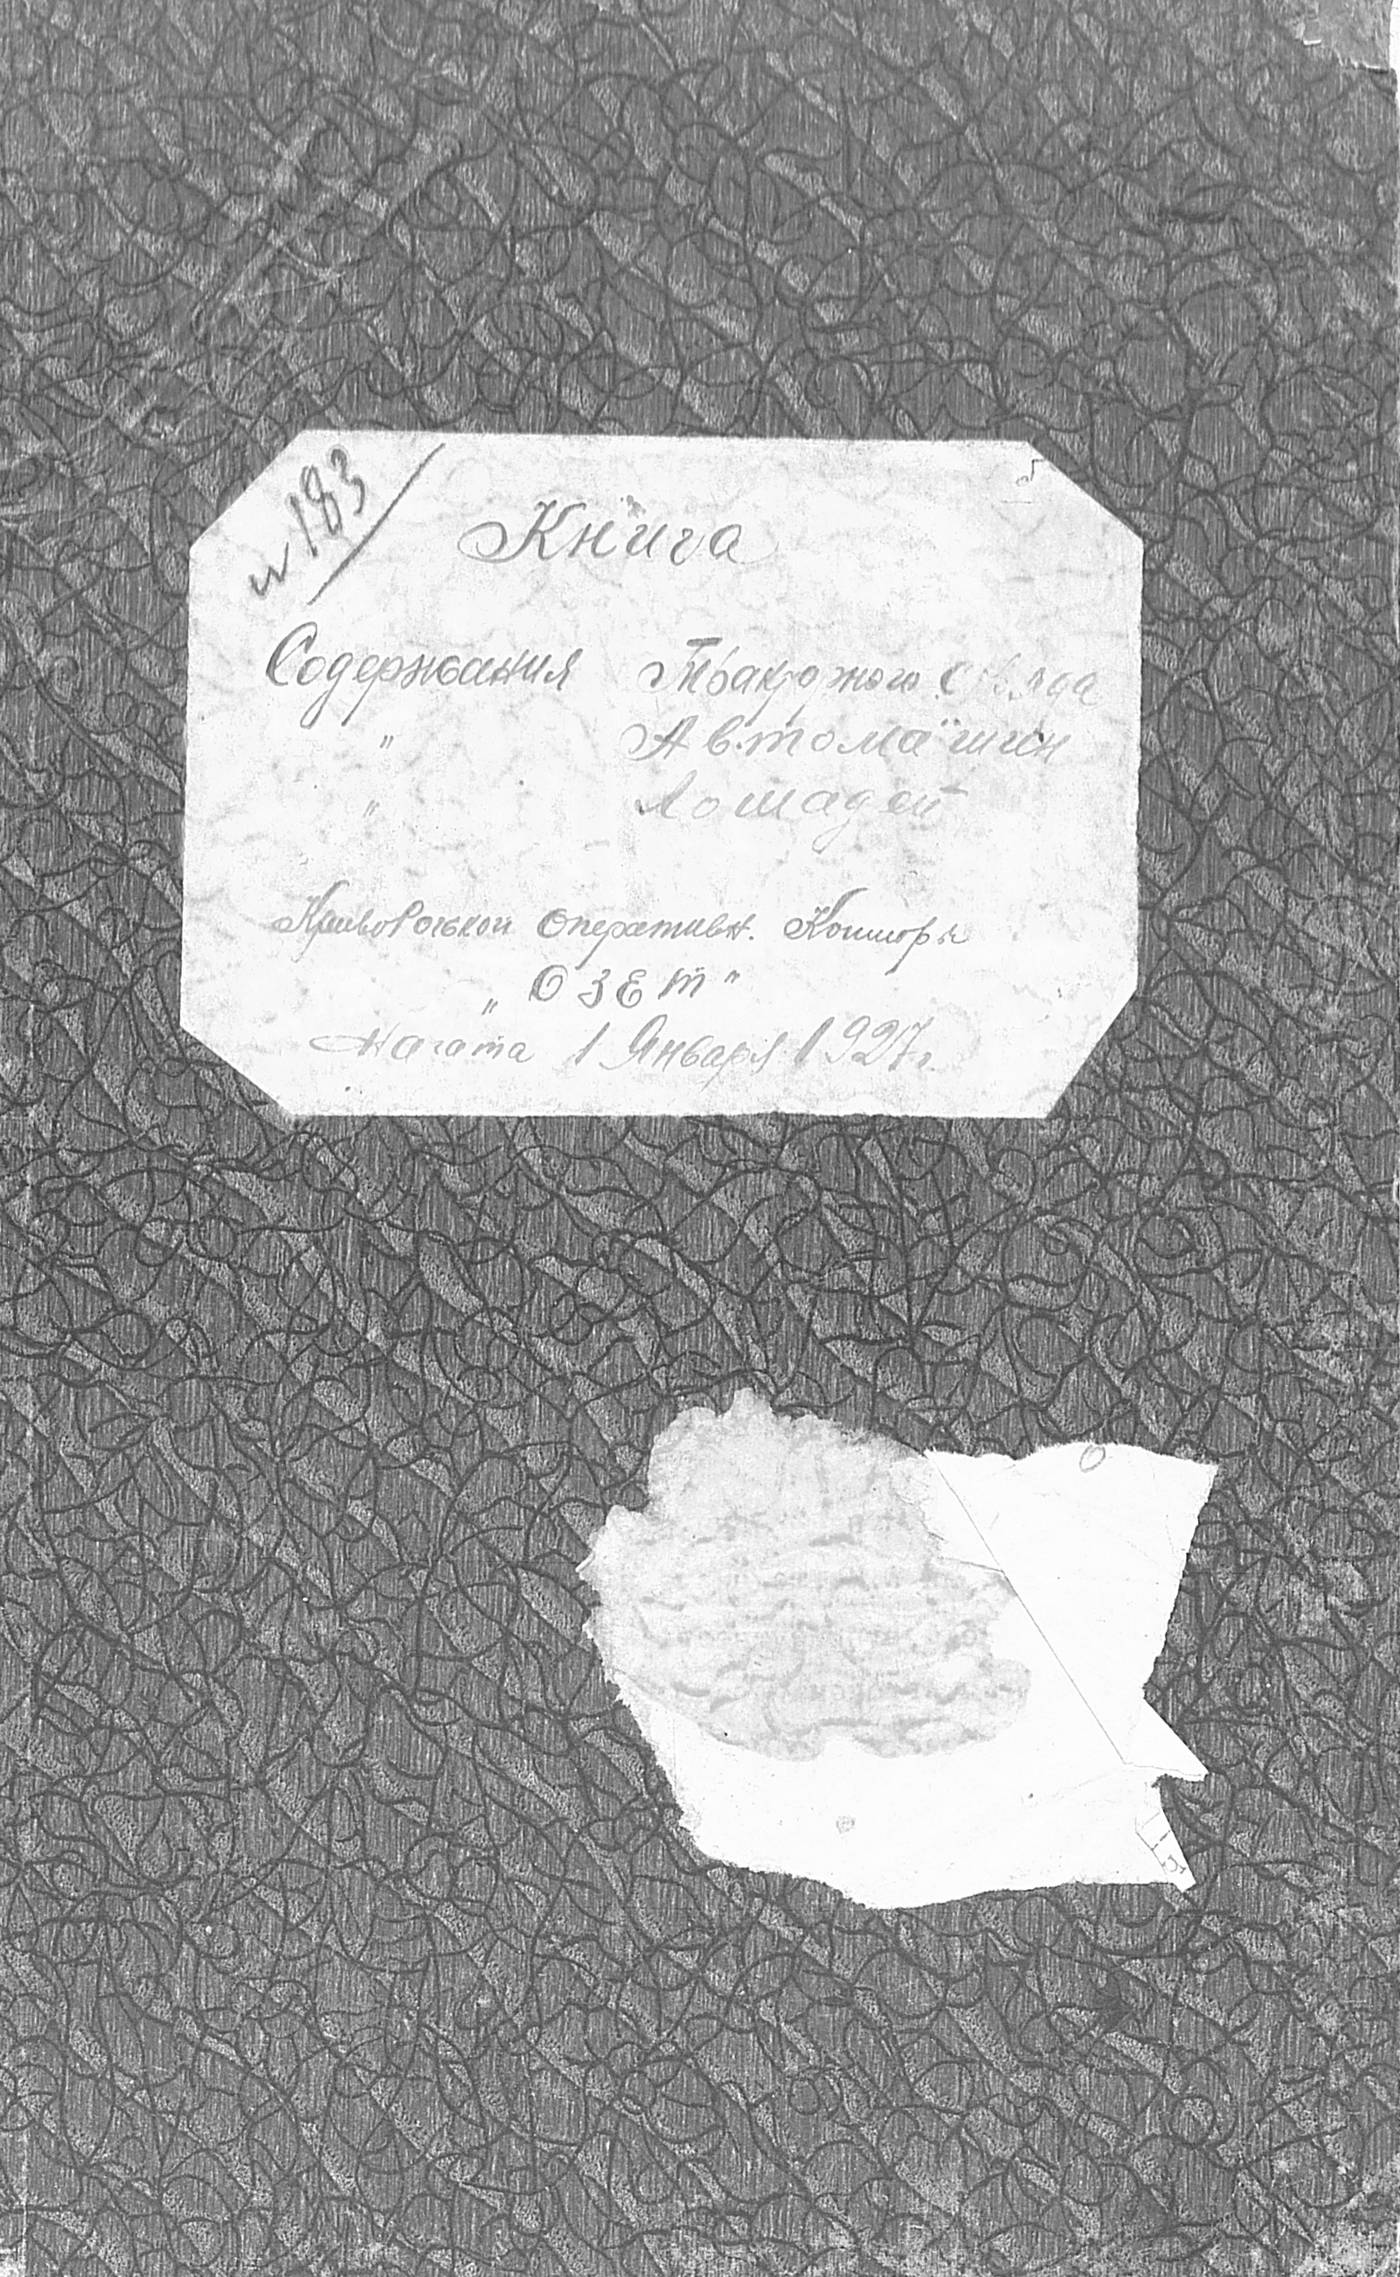 н 183
Книга
Содержания Тракторного отряда
" Автомашин
" Лошадей
Криворожской Оперативн. Конторы
„Озет"
Начата 1 Января 1927 г.